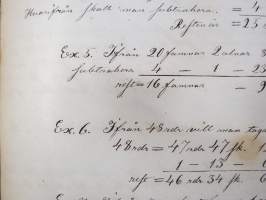 Hvarifrån skall man subtrahera. = 4
Resten är = 25
Ex. 5. Ifrån 20 famnar 2 alnar
subtrahera 4 - 1 - 23
rest = 16 famnar - 9
Ex. 6. Ifrån 48 rdr vill man taga
48 rdr = 47 rdr 47 sk. 1
1 - 13 - 6
rest = 46 rdr 34 sk. 6